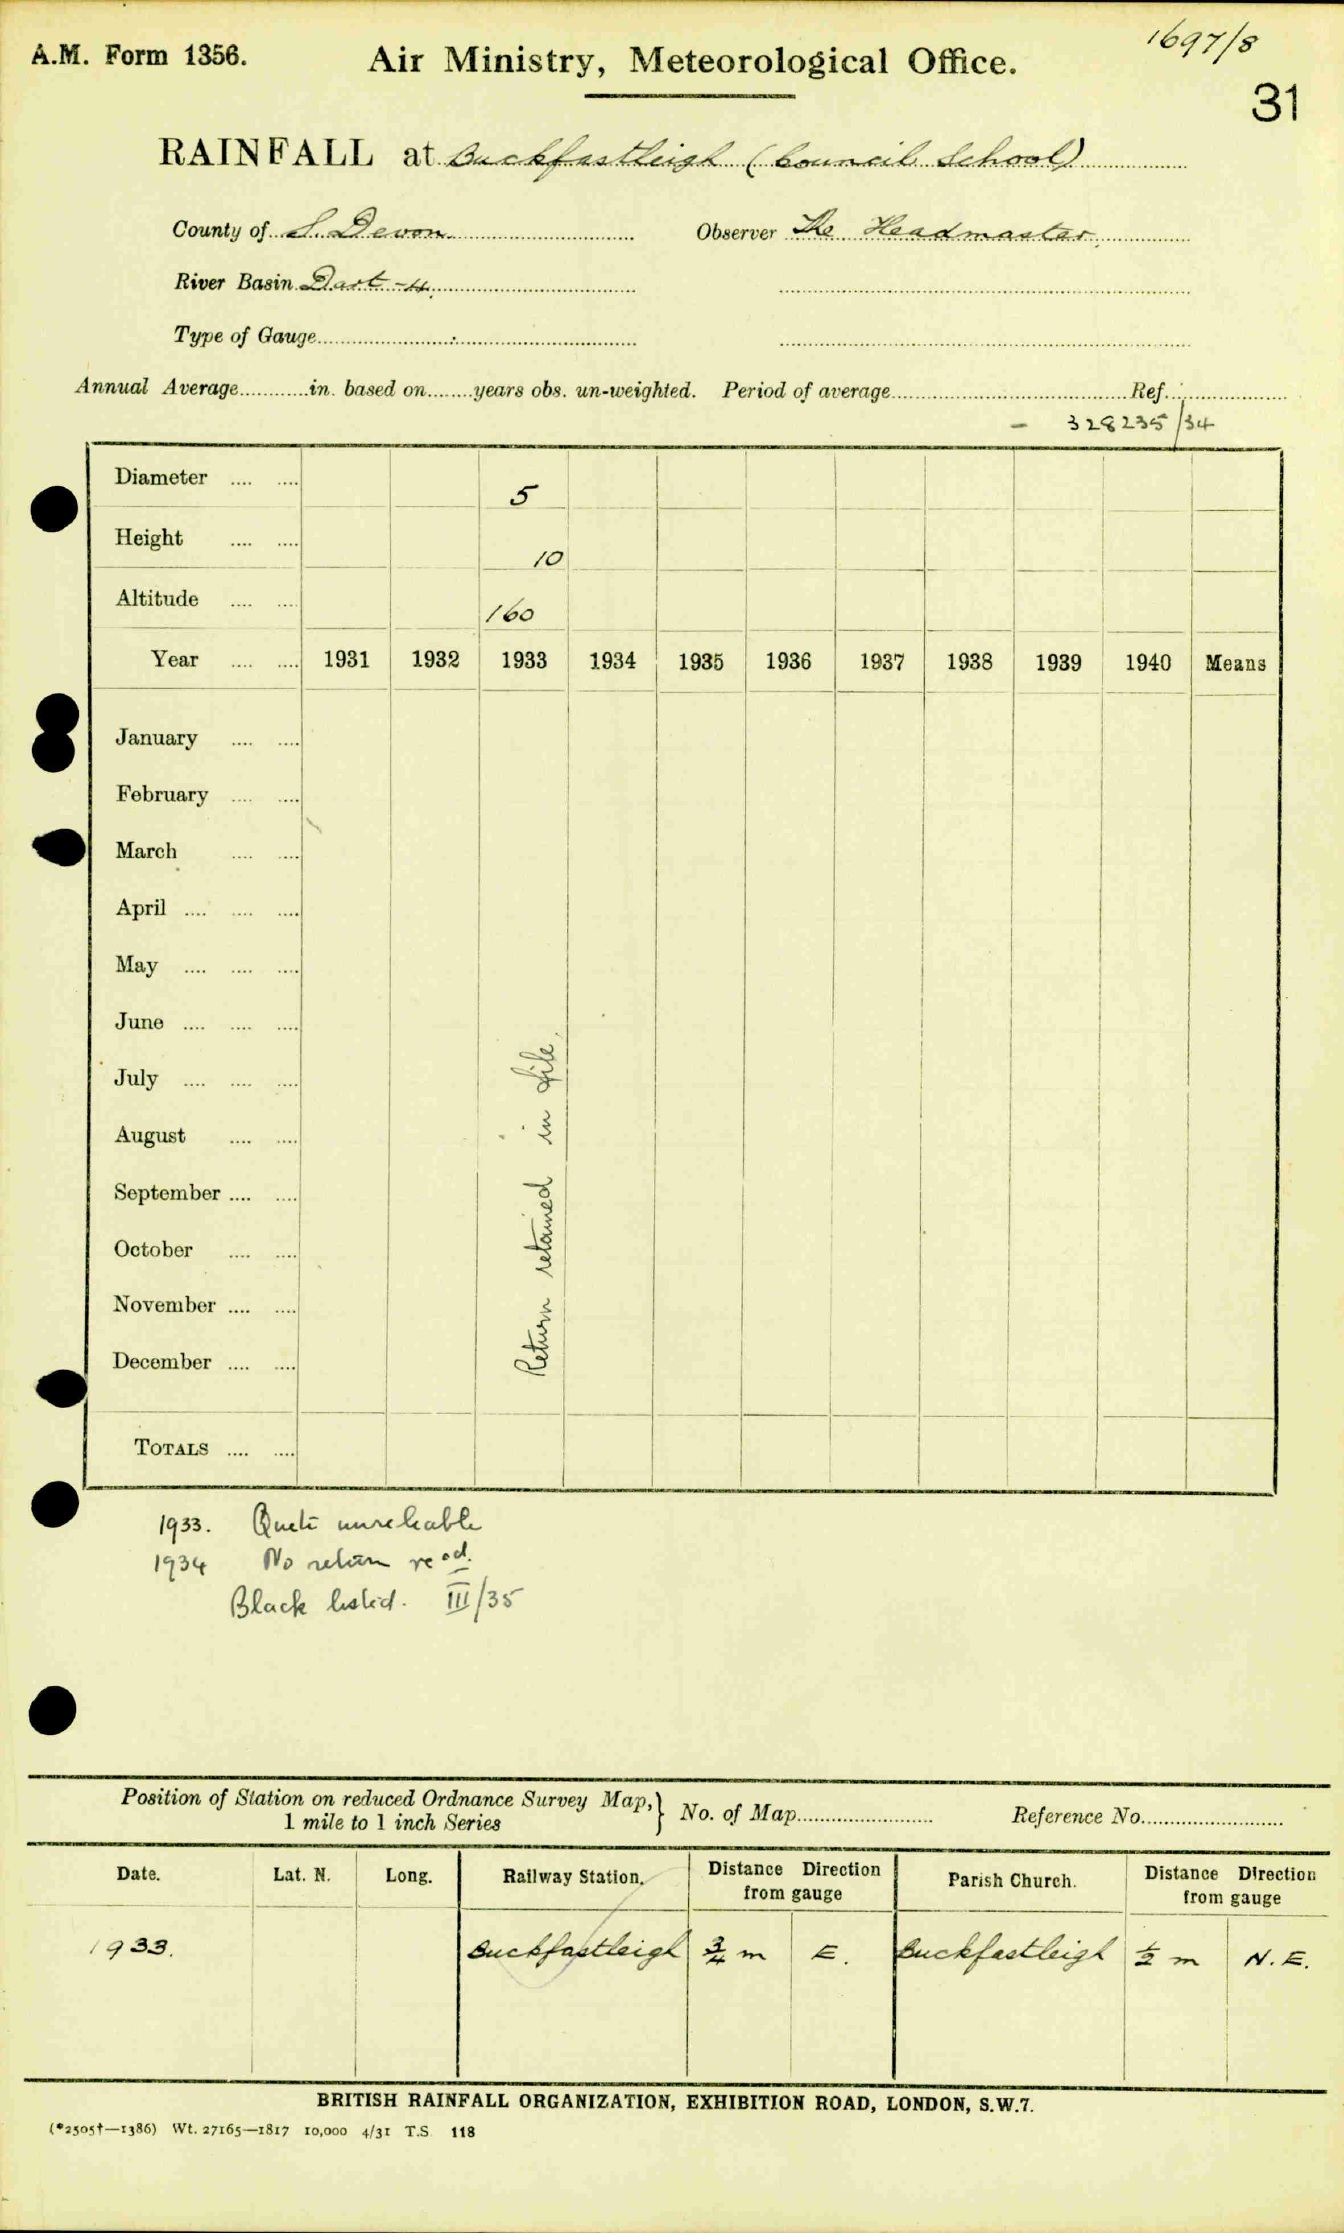 1697/8
A.M. Form 1356. Air Ministry, Meteorological Office.
31
RAINFALL at Buckfastleigh (Council School)
County of S. Devon Observer The Headmaster.
River Basin Dart - 4.
Type of Gauge
Annual Average in. based on years obs. un-weighted. Period of average Ref.
- 328235/34
Diameter 5
Height 10
Altitude 160
Year 1931 1932 1933 1934 1935 1936 1937 1938 1939 1940 Means
January
February
March
April
May
June
July
August
September
October
November
December
Return retained in file.
TOTALS
1933. Quite unreliable
1934 No return recd.
Black listed. III/35
Position of Station on reduced Ordnance Survey Map, } No. of Map Reference No.
1 mile to 1 inch Series
Date. Lat. N. Long. Railway Station. Distance Direction Parish Church. Distance Direction
from gauge from gauge
1933. Buckfastleigh 3/4 m E. Buckfastleigh 1/2 m N.E.
BRITISH RAINFALL ORGANIZATION, EXHIBITION ROAD, LONDON, S.W.7.
(*2505†—1386) Wt. 27165—1817 10,000 4/31 T.S. 118